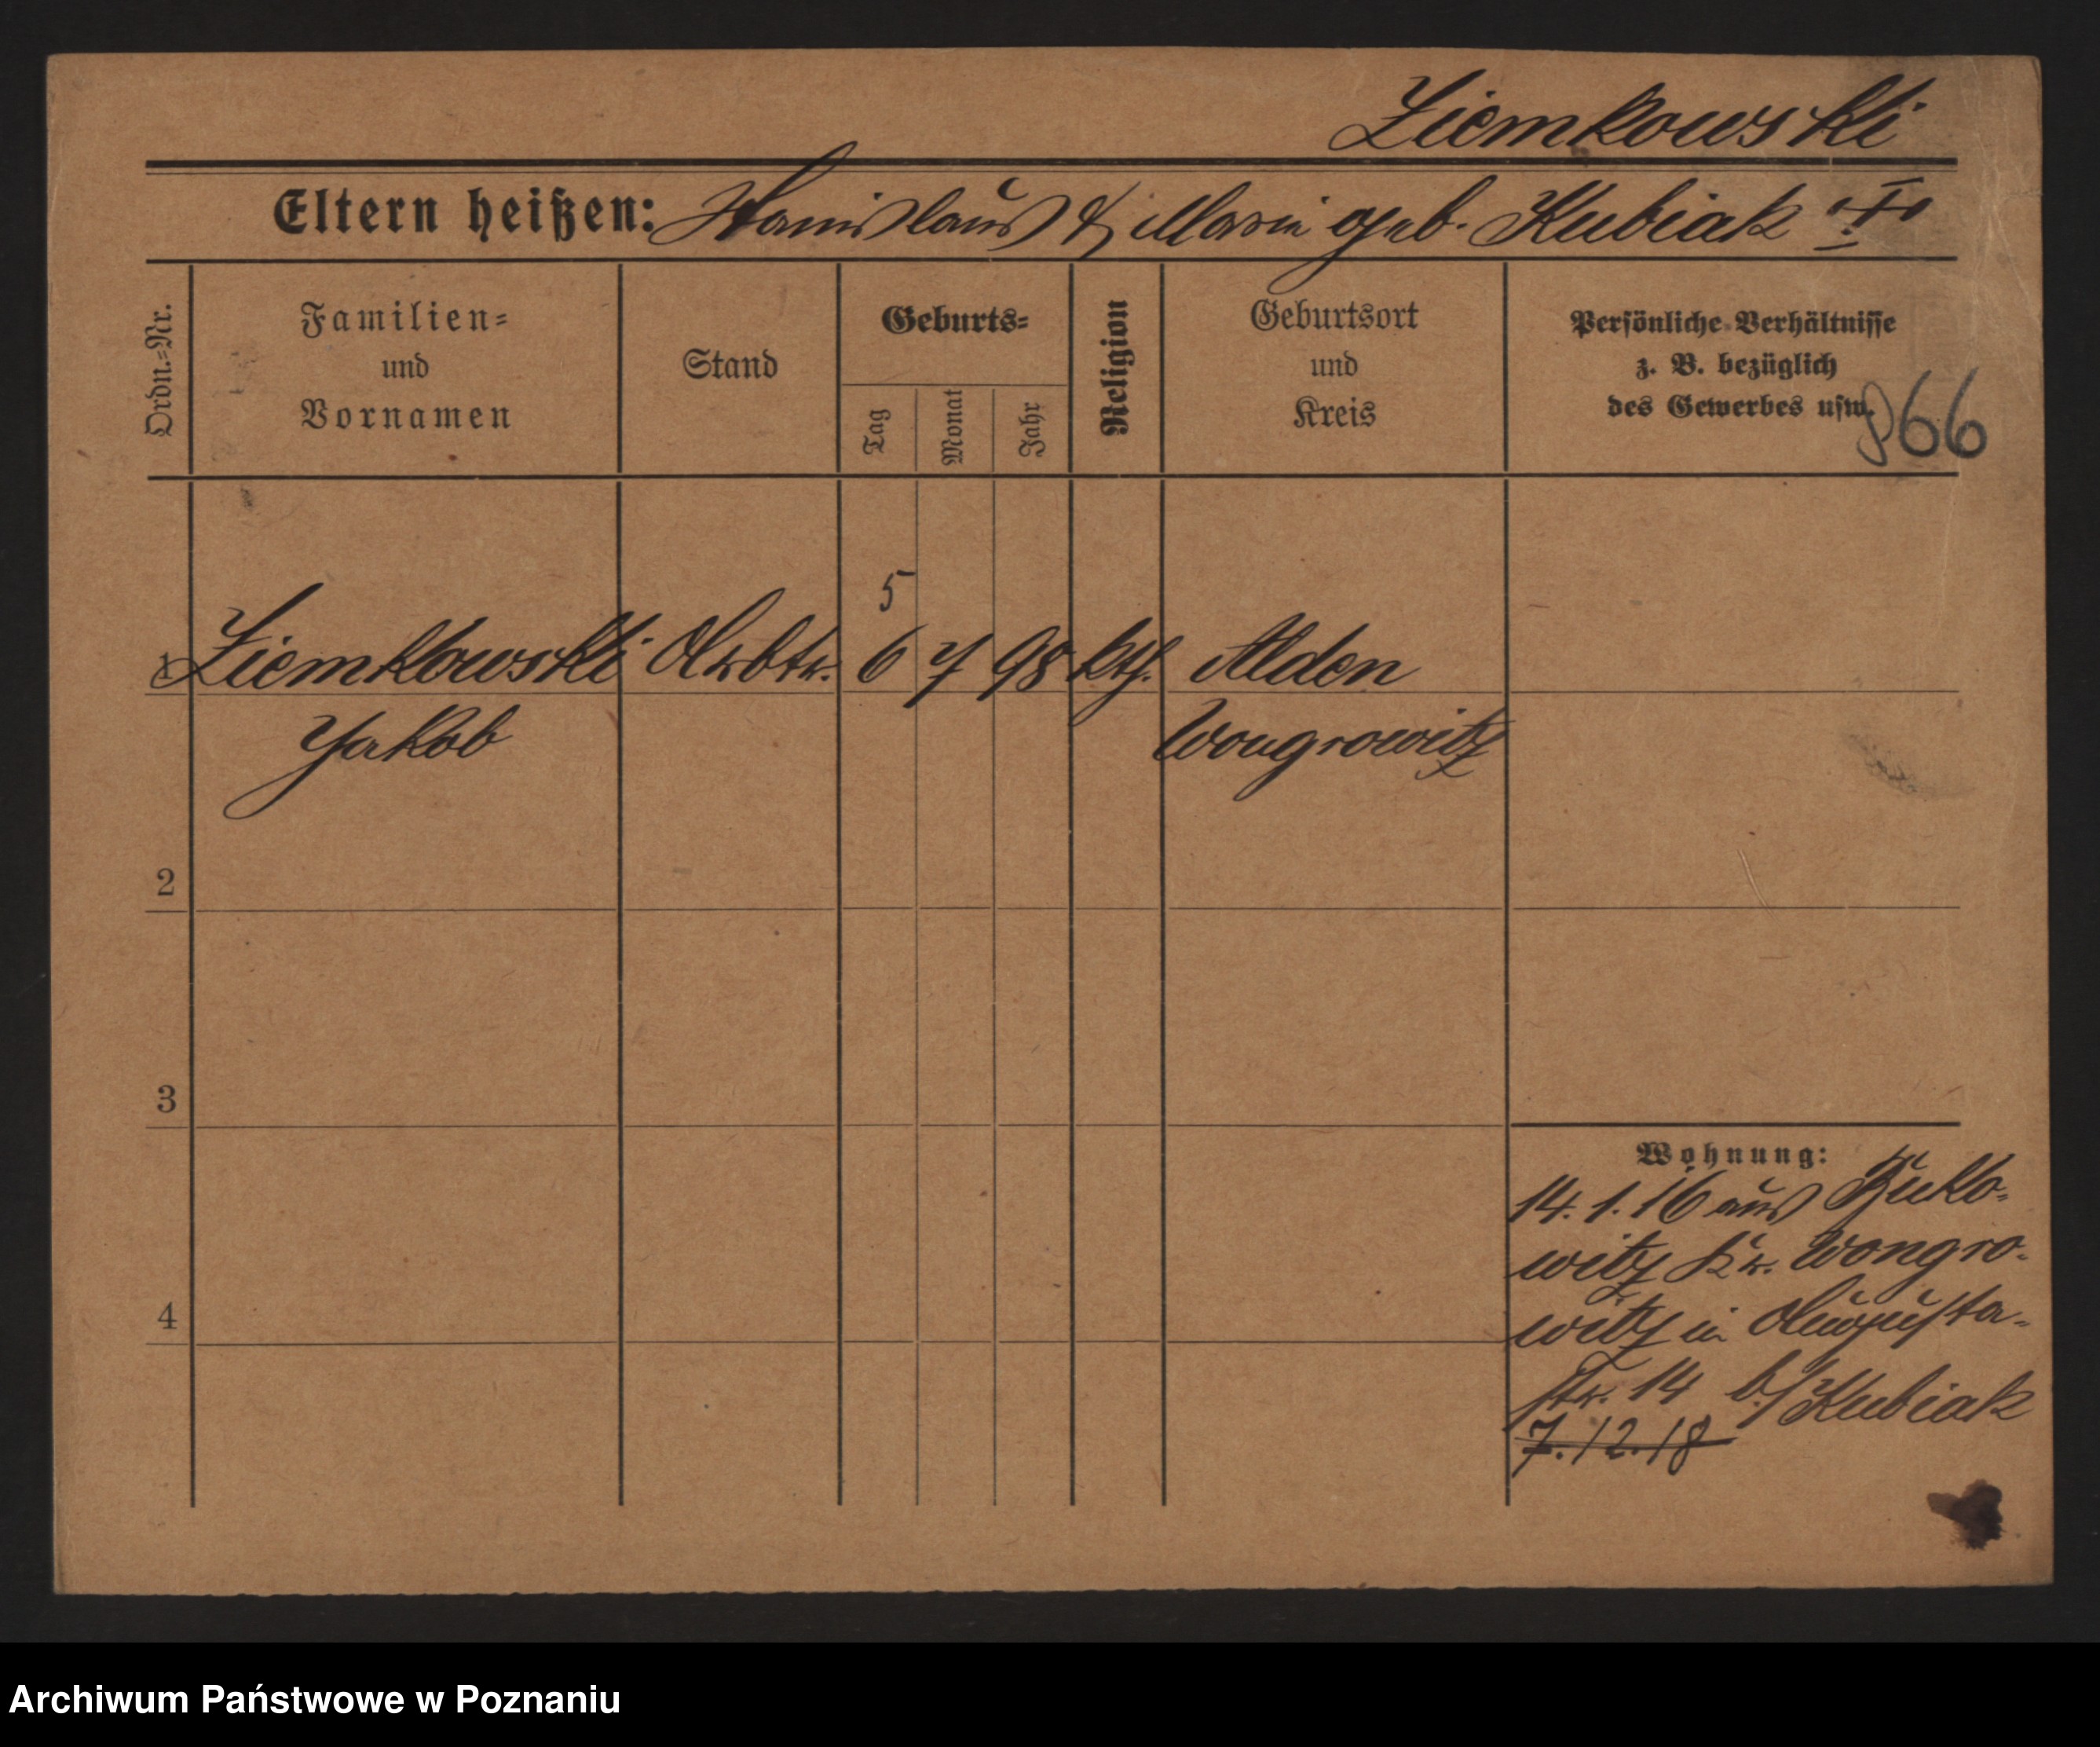 Ziemkowski
Eltern heißen: Stanislaus & Marie geb. Kubiak
Ordn.-Nr.
Familien-
und
Vornamen
Stand
Geburts-
Tag
Monat
Jahr
Religion
Geburtsort
und
Kreis
Persönliche Verhältnisse
z. B. bezüglich
des Gewerbes usw.
966
5
1 Ziemkowski Arbtr. 6 7 98 kth. Alden
Jakob Wongrowitz
2
3
4
Wohnung:
14.1.16 aus
witz Kr. Wongro-
witz in Augusta-
str. 14 b/ Kubiak
7.12.18
Archiwum Państwowe w Poznaniu